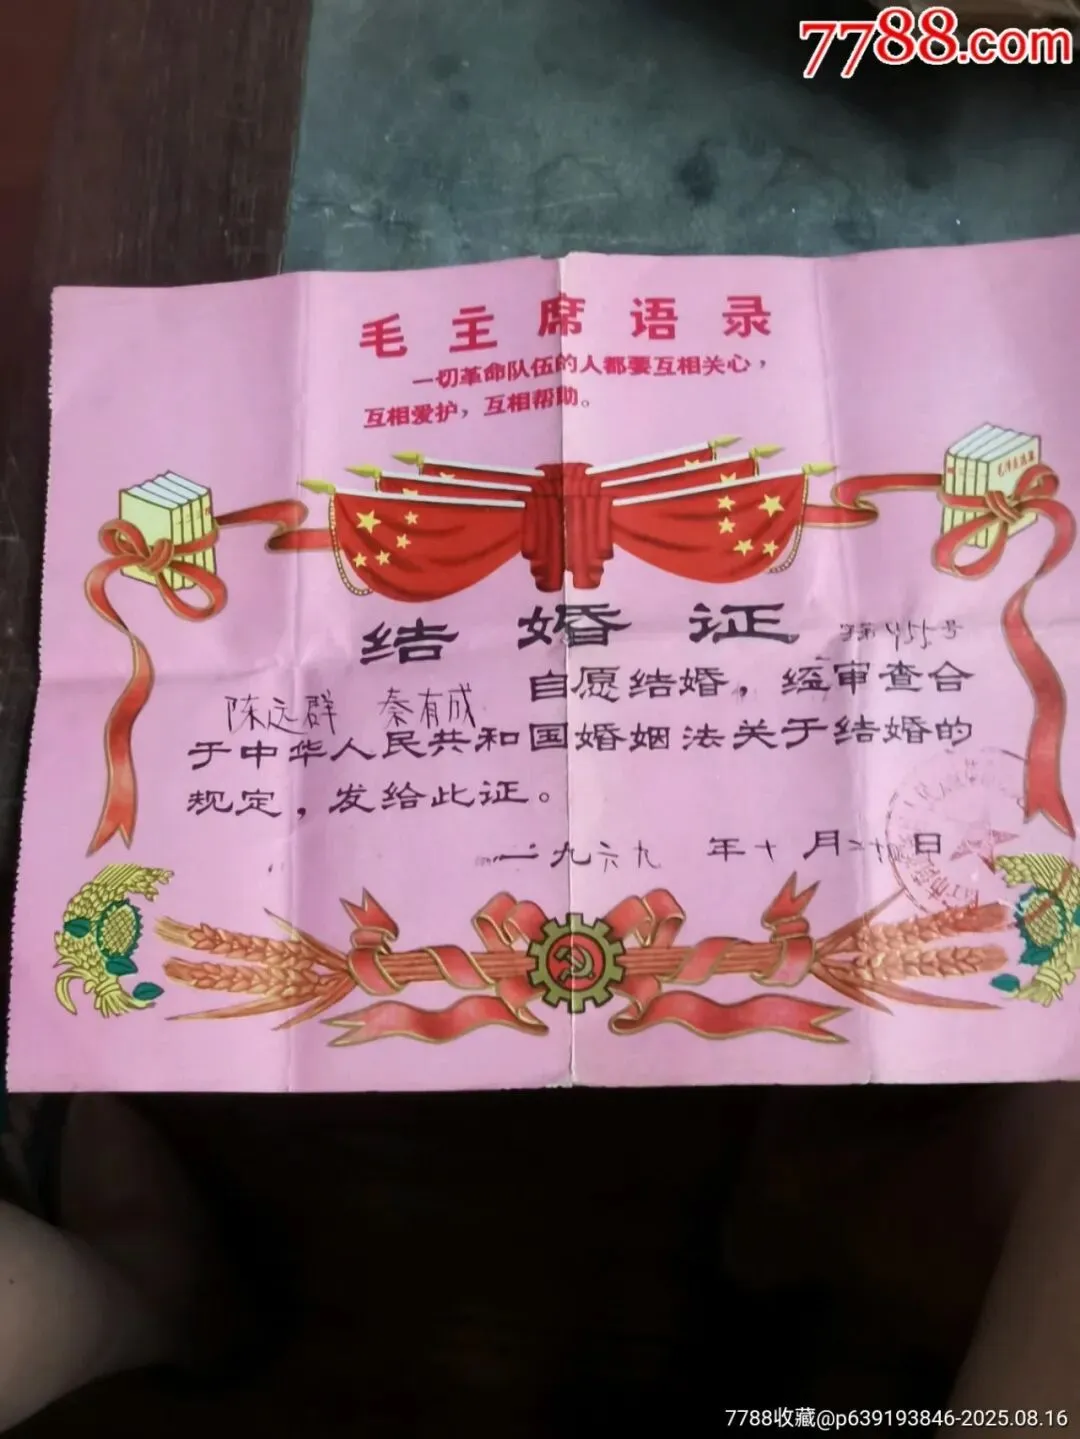 7788.com
毛主席语录
一切革命队伍的人都要互相关心，
互相爱护，互相帮助。
结婚证 第455号
陈远群 秦有成 自愿结婚，经审查合
于中华人民共和国婚姻法关于结婚的
规定，发给此证。
一九六九年十月二十日
7788收藏@p639193846-2025.08.16